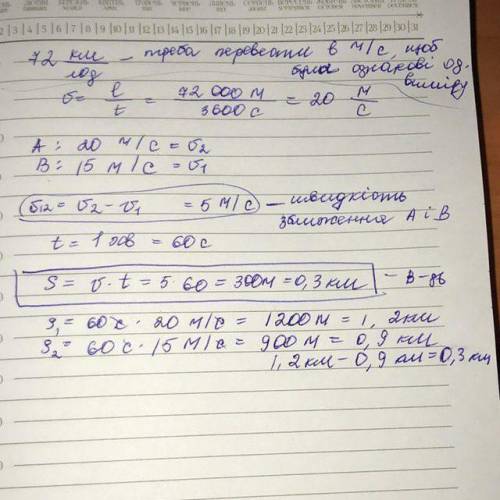 СІЧЕНЬ ЛЮТИЙ БЕРЕЗЕНЬ КВІТЕНЬ ТРАВЕНЬ ЧЕРВЕНЬ ЛИПЕНЬ СЕРПЕНЬ ВЕРЕСЕНЬ ЖОВТЕНЬ ЛИСТОПАД ГРУДЕНЬ
2 | 3 | 4 | 5 | 6 | 7 | 8 | 9 | 10 | 11 | 12 | 13 | 14 | 15 | 16 | 17 | 18 | 19 | 20 | 21 | 22 | 23 | 24 | 25 | 26 | 27 | 28 | 29 | 30 | 31
72 км/год – треба перевести в м/с, щоб
були однакові од.
виміру
υ = l/t = 72 000 м / 3600 с = 20 м/с
A: 20 м/с = υ2
B: 15 м/с = υ1
υ12 = υ2 - υ1 = 5 м/с – швидкість
зближення А і В
t = 1 хв = 60 с
S = υ · t = 5 · 60 = 300 м = 0,3 км – В-дь
S1 = 60 с · 20 м/с = 1200 м = 1,2 км
S2 = 60 с · 15 м/с = 900 м = 0,9 км
1,2 км - 0,9 км = 0,3 км